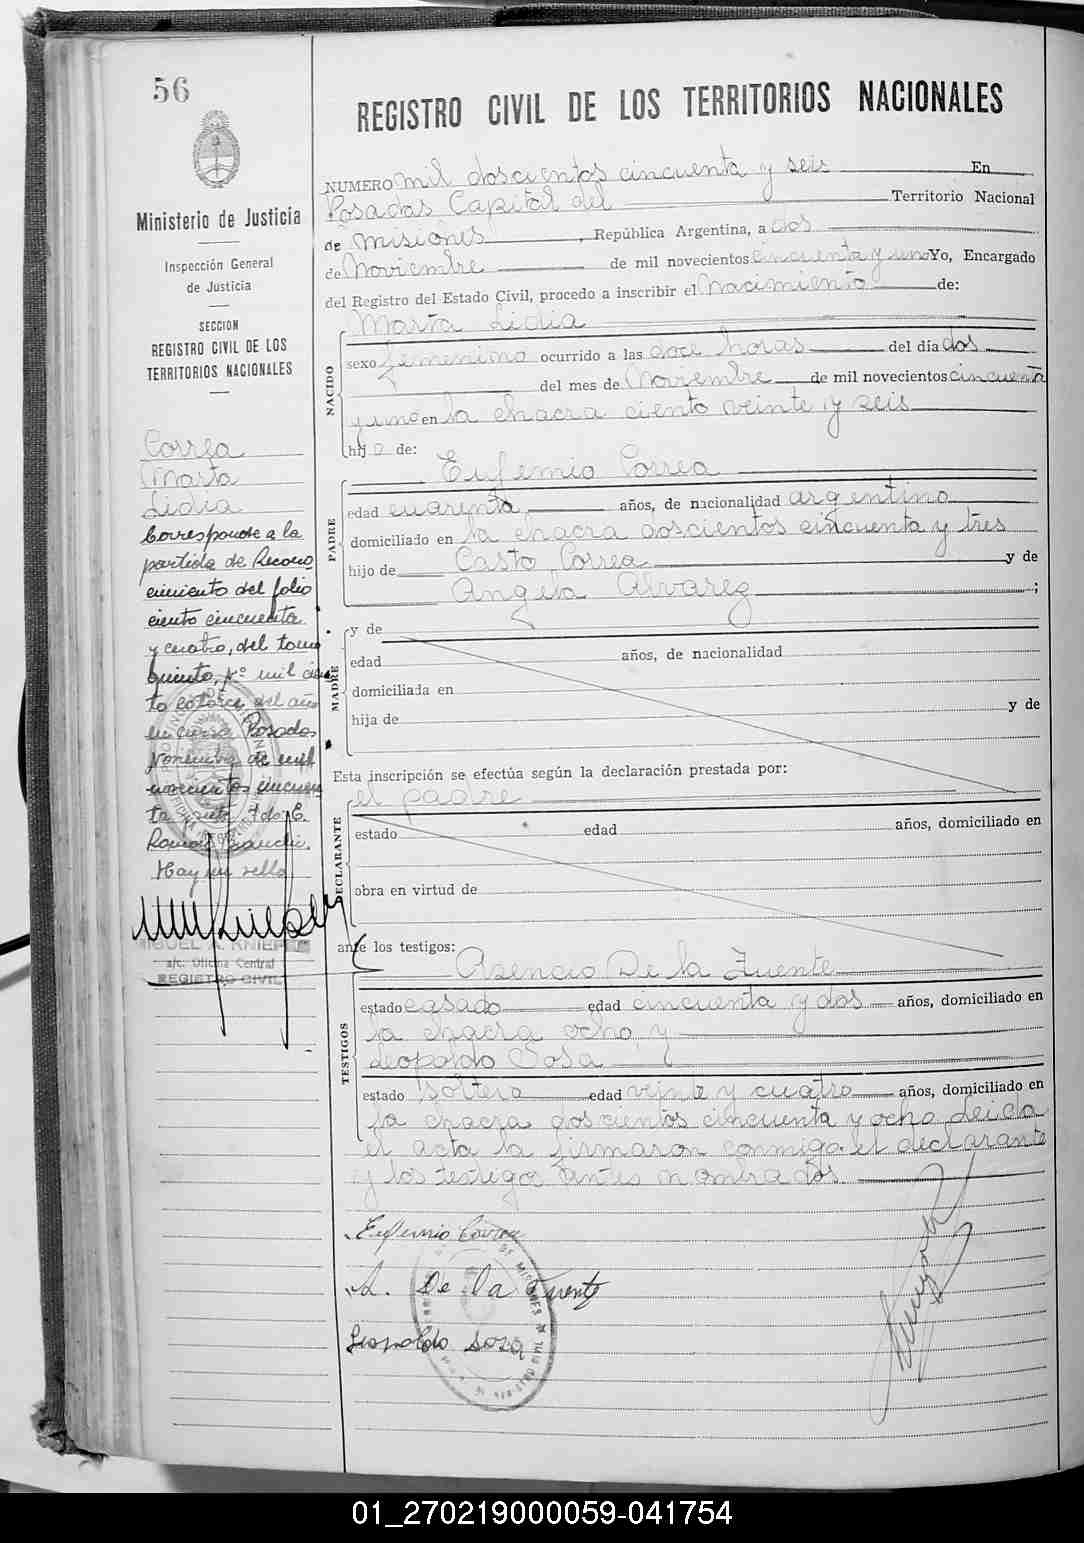 56
REGISTRO CIVIL DE LOS TERRITORIOS NACIONALES
Ministerio de Justicia
Inspección General
de Justicia
SECCION
REGISTRO CIVIL DE LOS
TERRITORIOS NACIONALES
Correa
Marta
Lidia
Corresponde a la
partida de Recono
cimiento del folio
ciento cincuenta
y cuatro, del tomo
quinto, nº mil cien
to catorce del año
en curso Posadas
Noviembre de mil
novecientos cincuen
ta
Hay un sello
MIGUEL A. KNIEP
a/c. Oficina Central
REGISTRO CIVIL
NUMERO mil doscientos cincuenta y seis En
Posadas Capital del Territorio Nacional
de Misiones, República Argentina, a dos
de Noviembre de mil novecientos cincuenta y uno Yo, Encargado
del Registro del Estado Civil, procedo a inscribir el Nacimiento de:
NACIDO
Marta Lidia
sexo femenino ocurrido a las doce horas del día dos
del mes de Noviembre de mil novecientos cincuenta
y uno en la chacra ciento veinte y seis
hija de:
PADRE
Eufemio Correa
edad cuarenta años, de nacionalidad argentino
domiciliado en la chacra doscientos cincuenta y tres
hijo de Casto Correa y de
Angela Alvarez;
MADRE
y de
edad años, de nacionalidad
domiciliada en
hija de y de
Esta inscripción se efectúa según la declaración prestada por:
el padre
DECLARANTE
estado edad años, domiciliado en
obra en virtud de
ante los testigos:
Asencio De la Fuente
TESTIGOS
estado casado edad cincuenta y dos años, domiciliado en
la chacra ocho y
Leopoldo Sosa
estado soltero edad veinte y cuatro años, domiciliado en
la chacra doscientos cincuenta y ocho leida
el acta la firmaron conmigo el declarante
y los testigos antes nombrados.
Eufemio Correa
A. De la Fuente
Leopoldo Sosa
01_270219000059-041754